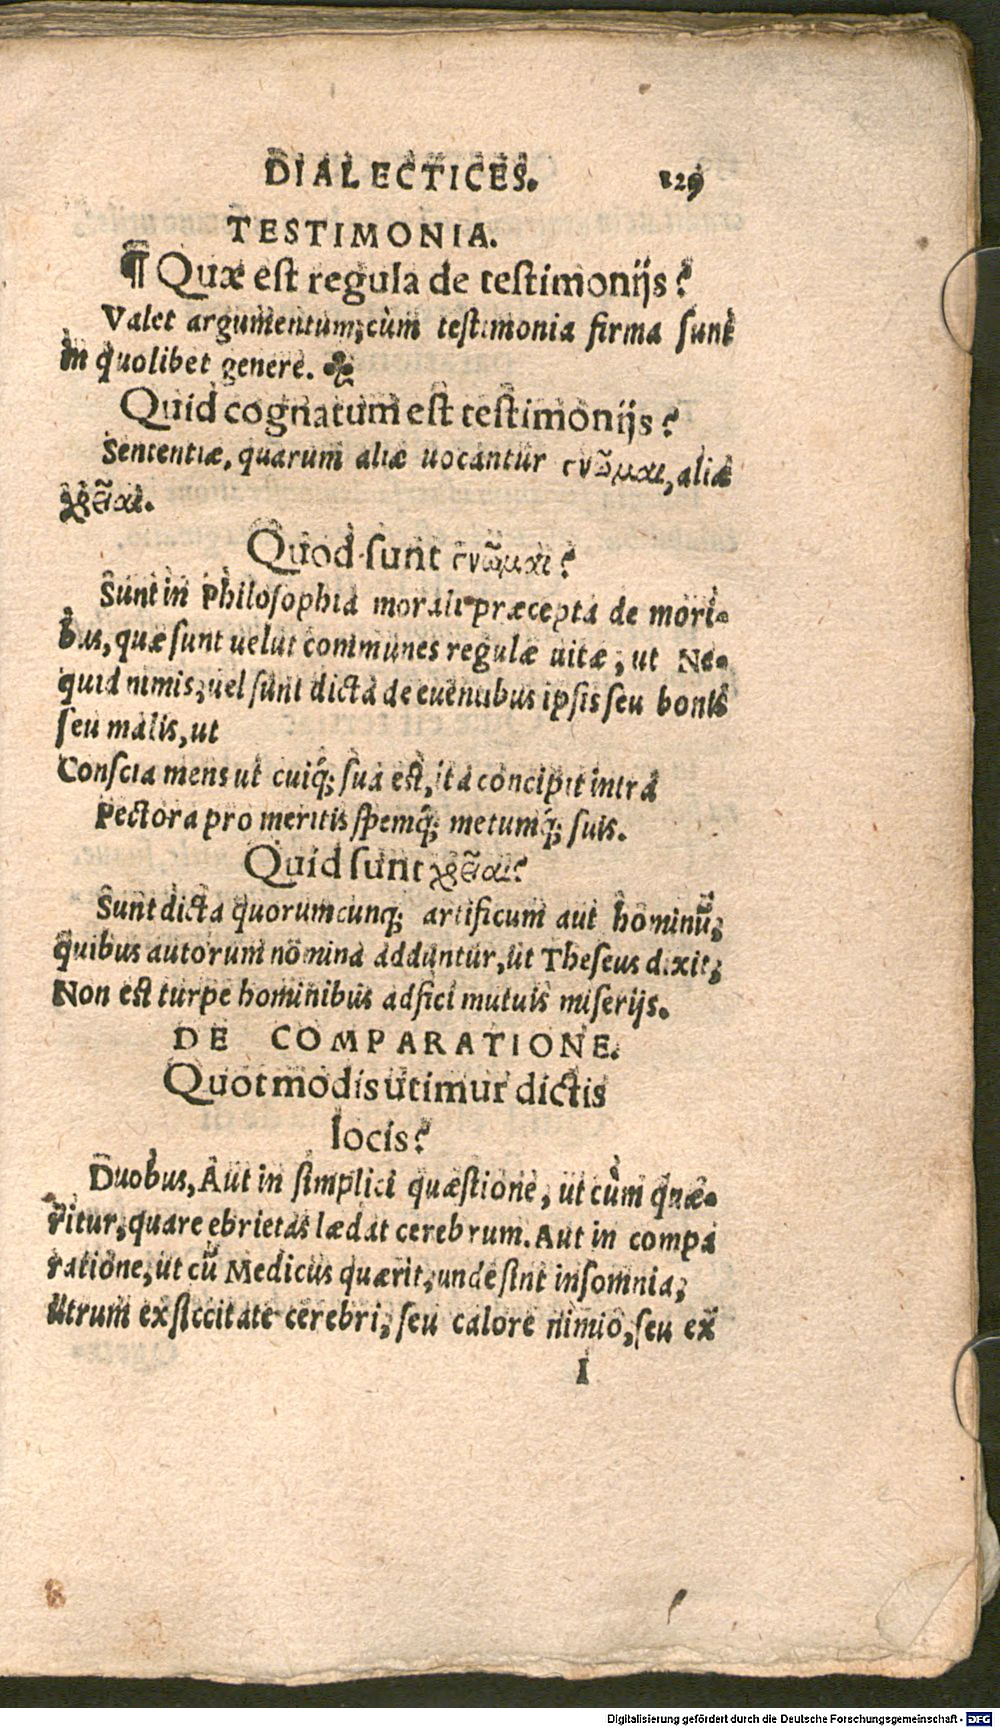 DIALECTICES. 129
TESTIMONIA.
¶ Quæ est regula de testimonijs?
Valet argumentum, cùm testimonia firma sunt
in quolibet genere. ☘
Quid cognatum est testimonijs?
Sententiæ, quarum aliæ uocantur γνῶμαι, aliæ
χρεῖαι.
Quod sunt γνῶμαι?
Sunt in Philosophia morali præcepta de mori-
bus, quæ sunt uelut communes regulæ uitæ, ut Ne-
quid nimis, uel sunt dicta de euentibus ipsis seu bonis
seu malis, ut
Conscia mens ut cuiq; sua est, ita concipit intra
Pectora pro meritis spemq; metumq; suis.
Quid sunt χρεῖαι?
Sunt dicta quorumcunq; artificum aut hominũ,
quibus autorum nomina adduntur, ut Theseus dixit,
Non est turpe hominibus adfici mutuis miserijs.
DE COMPARATIONE.
Quot modis utimur dictis
locis?
Duobus, Aut in simplici quæstione, ut cùm quæ-
ritur, quare ebrietas lædat cerebrum. Aut in compa
ratione, ut cũ Medicus quærit, unde sint insomnia,
utrum ex siccitate cerebri, seu calore nimio, seu ex
I
Digitalisierung gefördert durch die Deutsche Forschungsgemeinschaft - DFG